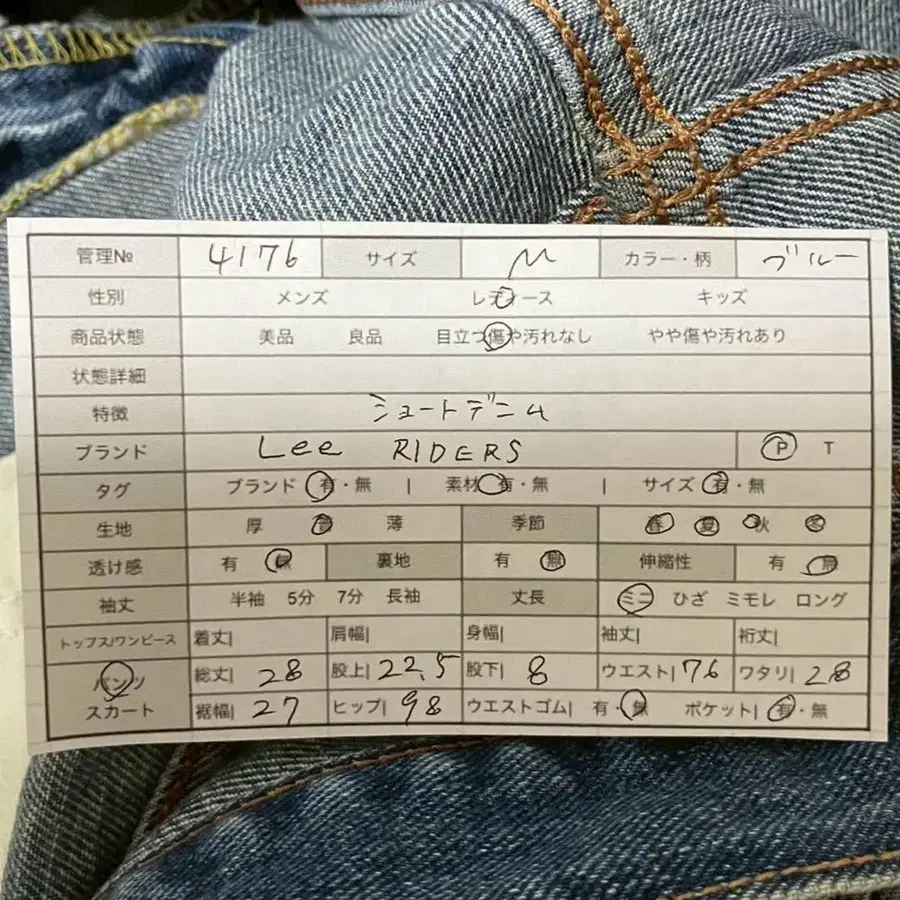 管理№ 4176 サイズ M カラー・柄 ブルー
性別 メンズ レディース キッズ
商品状態 美品 良品 目立つ傷や汚れなし やや傷や汚れあり
状態詳細
特徴 ショートデニム
ブランド Lee RIDERS P T
タグ ブランド 有・無 | 素材 有・無 | サイズ 有・無
生地 厚 普 薄 季節 春 夏 秋 冬
透け感 有 無 裏地 有 無 伸縮性 有 無
袖丈 半袖 5分 7分 長袖 丈長 ミニ ひざ ミモレ ロング
トップス/ワンピース 着丈| 肩幅| 身幅| 袖丈| 裄丈|
パンツ 総丈| 28 股上| 22.5 股下| 8 ウエスト| 76 ワタリ| 28
スカート 裾幅| 27 ヒップ| 98 ウエストゴム| 有・無 ポケット| 有・無